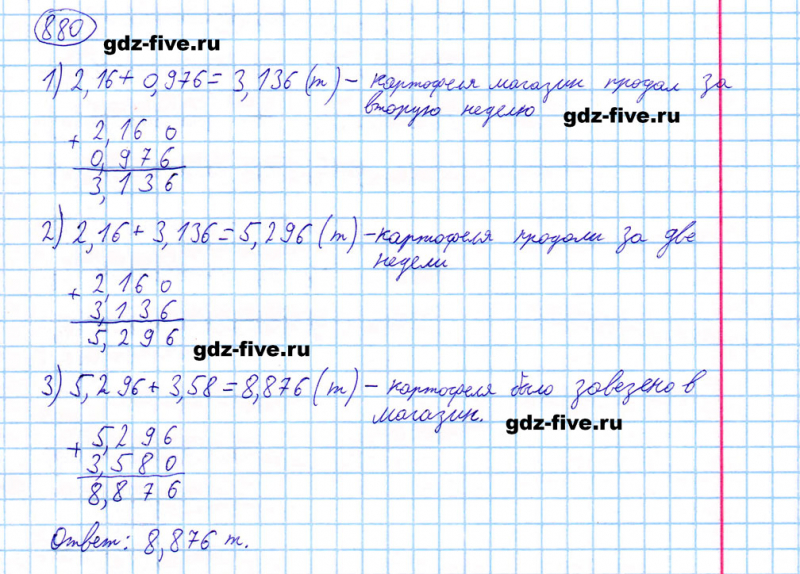 880
gdz-five.ru
1) 2,16 + 0,976 = 3,136 (т) – картофеля магазин продал за
вторую неделю
gdz-five.ru
+ 2,16 0
0,976
3,136
2) 2,16 + 3,136 = 5,296 (т) – картофеля продали за две
недели
+ 2,16 0
3,136
5,296
gdz-five.ru
3) 5,296 + 3,58 = 8,876 (т) – картофеля было завезено в
магазин.
gdz-five.ru
+ 5,296
3,580
8,876
Ответ: 8,876 т.